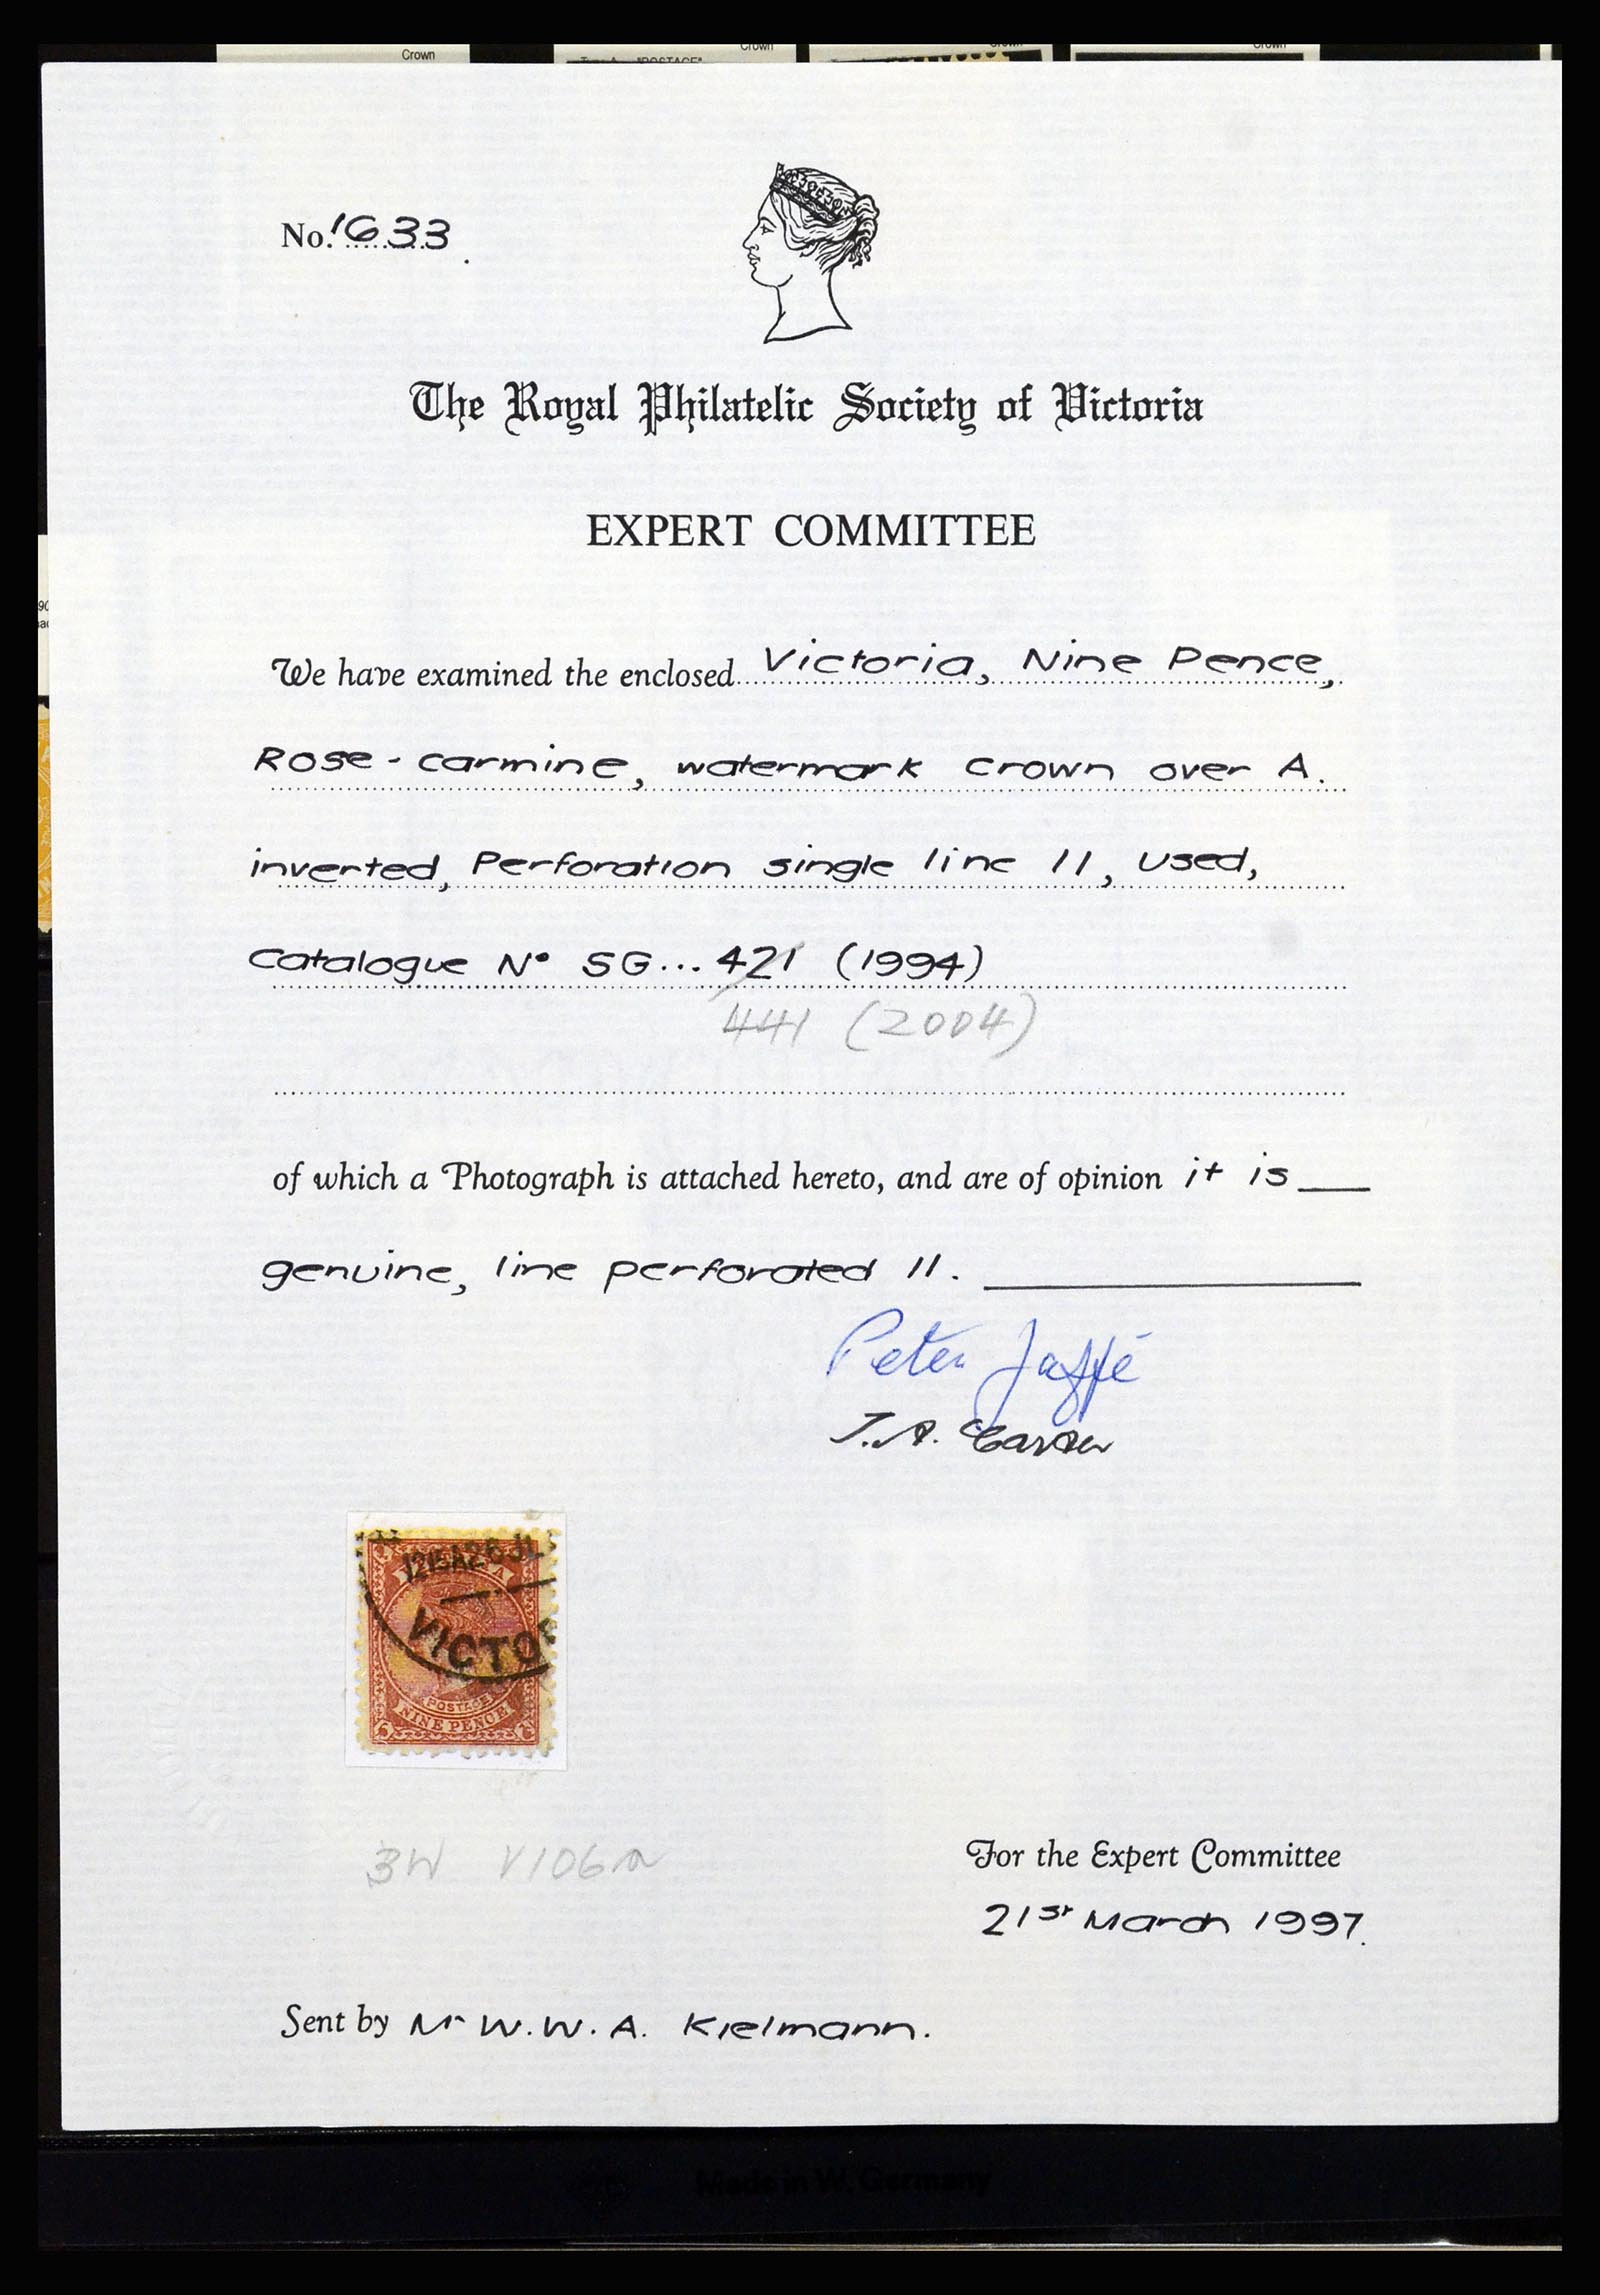 Crown
Crown
Crown
Crown
"POSTAGE"
No. 1633
The Royal Philatelic Society of Victoria
EXPERT COMMITTEE
We have examined the enclosed Victoria, Nine Pence,
Rose-carmine, watermark crown over A.
inverted, Perforation single line 11, used,
Catalogue No SG... 421 (1994)
441 (2004)
of which a Photograph is attached hereto, and are of opinion it is
genuine, line perforated 11.
Peter Jaffé
J.A.
1215A26JL
VICTOR
POSTAGE
NINE PENCE
BW V106a
For the Expert Committee
21st March 1997.
Sent by Mr W.W.A. Kielmann.
Made in W. Germany